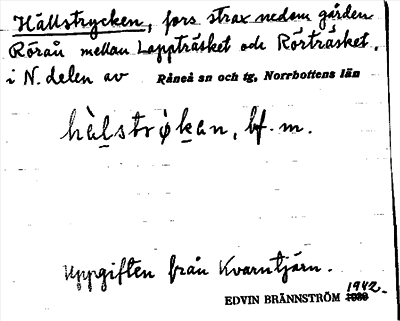 Hällstrycken, fors strax nedom gården
Rörån mellan Lappträsket och Rörträsket,
i N. delen av Råneå sn och tg, Norrbottens län
hàlstrýkan, bf. m.
Uppgiften från Kvarntjärn.
1942.
EDVIN BRÄNNSTRÖM 1939